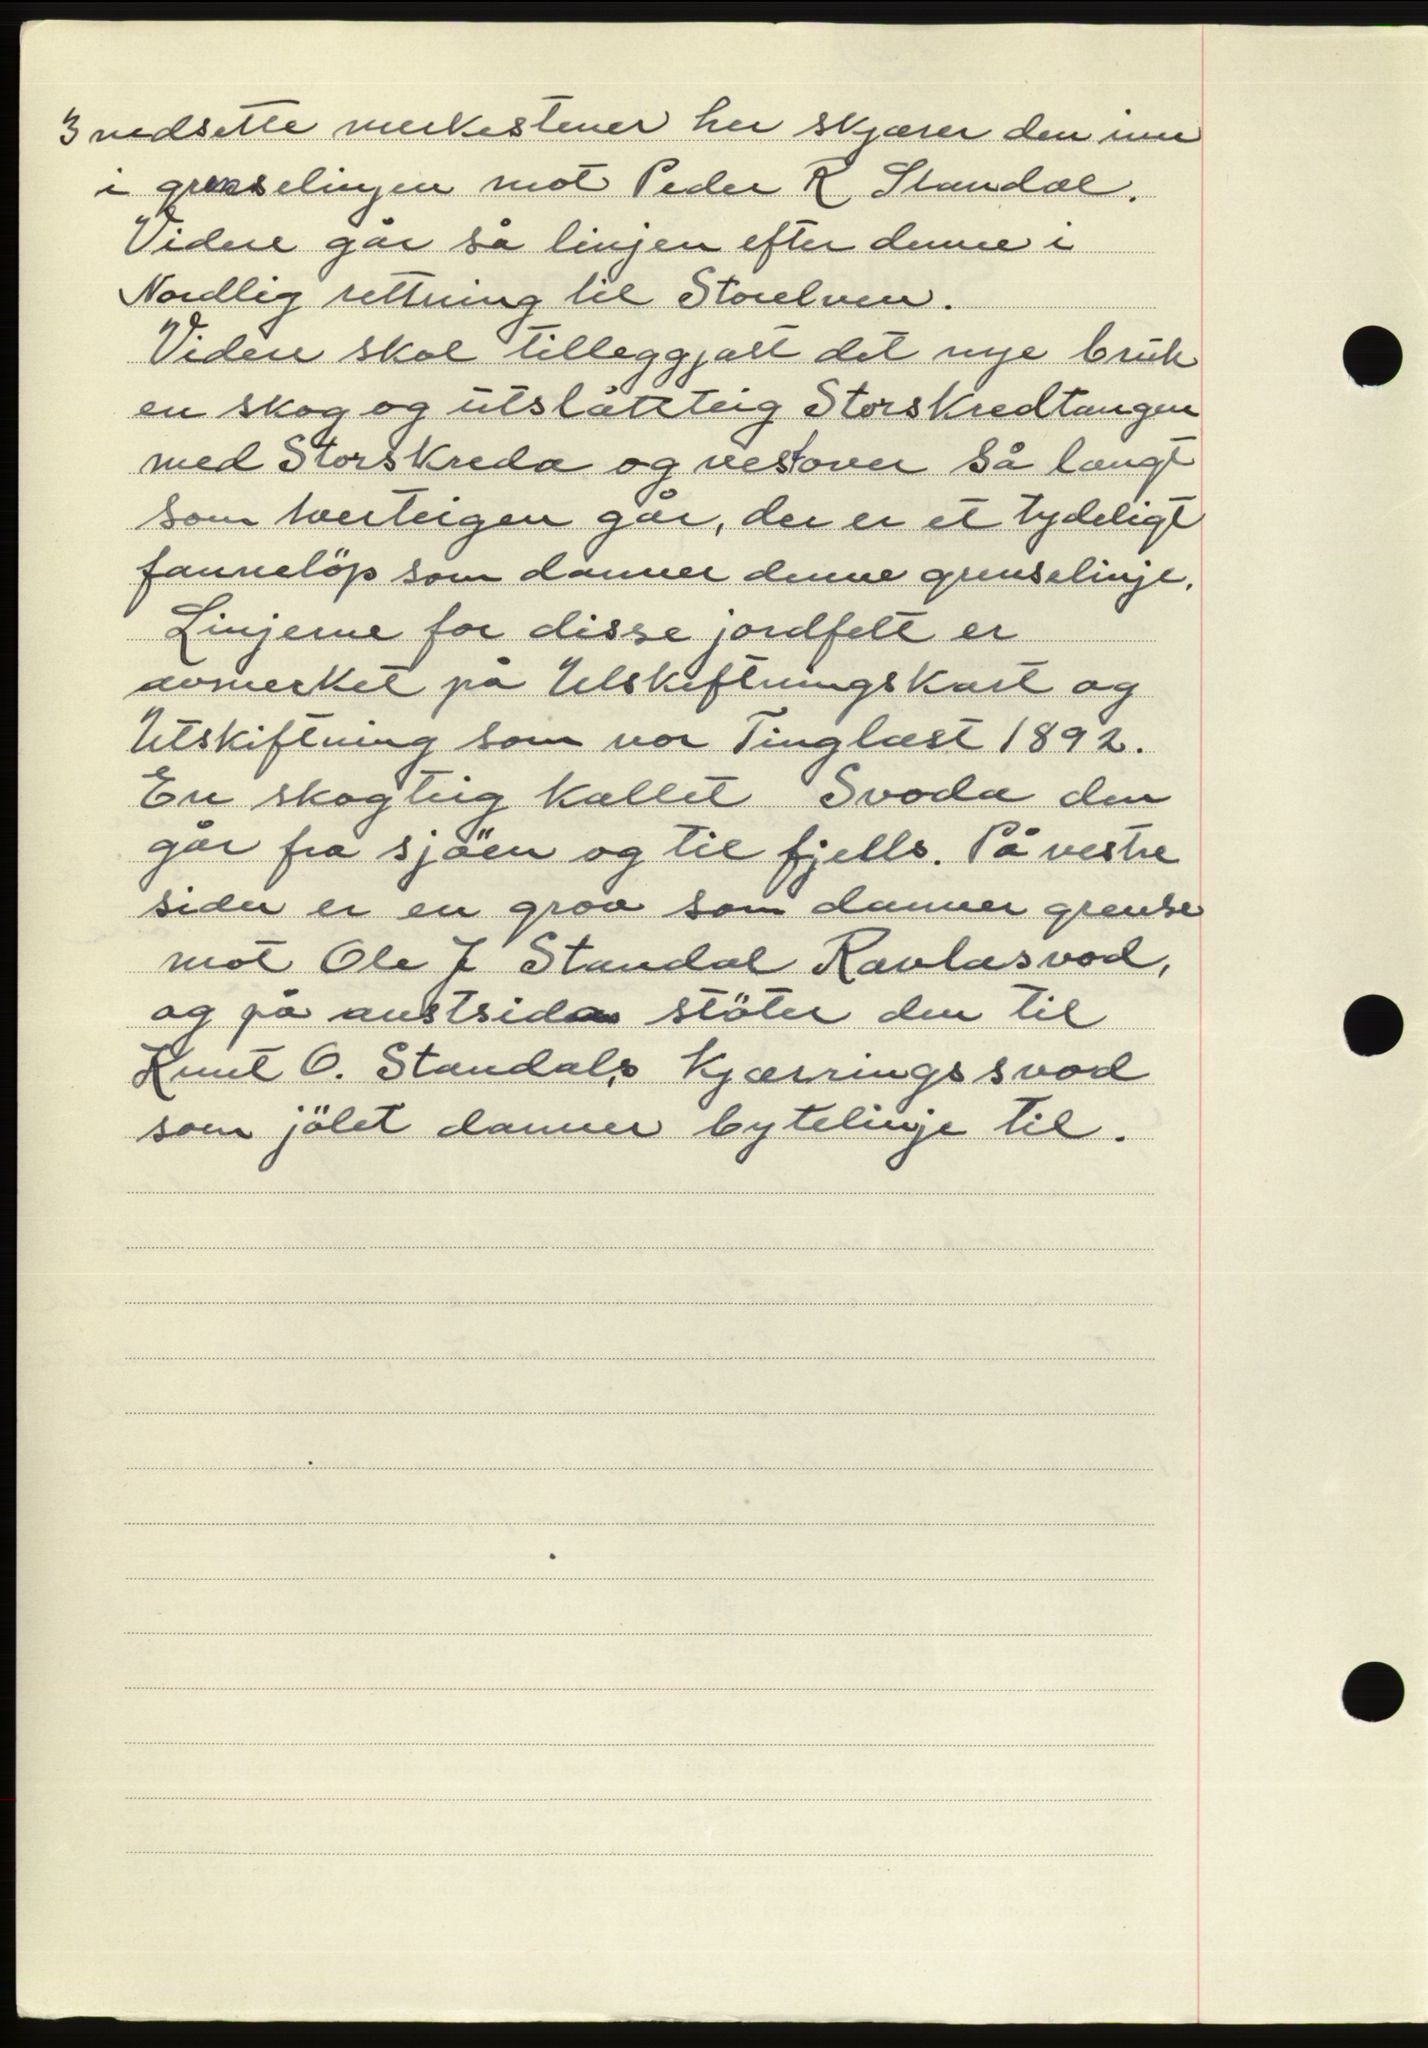 3 nedsette merkestener her skjærer den inn
i grenselinjen mot Peder R Standal.
Videre går så linjen efter denne i
Nordlig rettning til Storelven.
Videre skal tilleggjast det nye bruk
en skog og utslåtteig Storskredtangen
med Storskreda og vestover så langt
som teigen går, der er et tydeligt
fannelöp som danner denne grenselinje.
Linjerne for disse jordfelt er
avmerket på Utskiftningskart og
Utskiftning som var Tinglæst 1892.
En skogteig kallet Svoda den
går fra sjöen og til fjells. På vestre
siden er en grov som danner grense
mot Ole J Standal Ravlasvod,
og på austsida stöter den til
Knut O. Standals Kjærringssvod
som jölet danner bytelinje til.